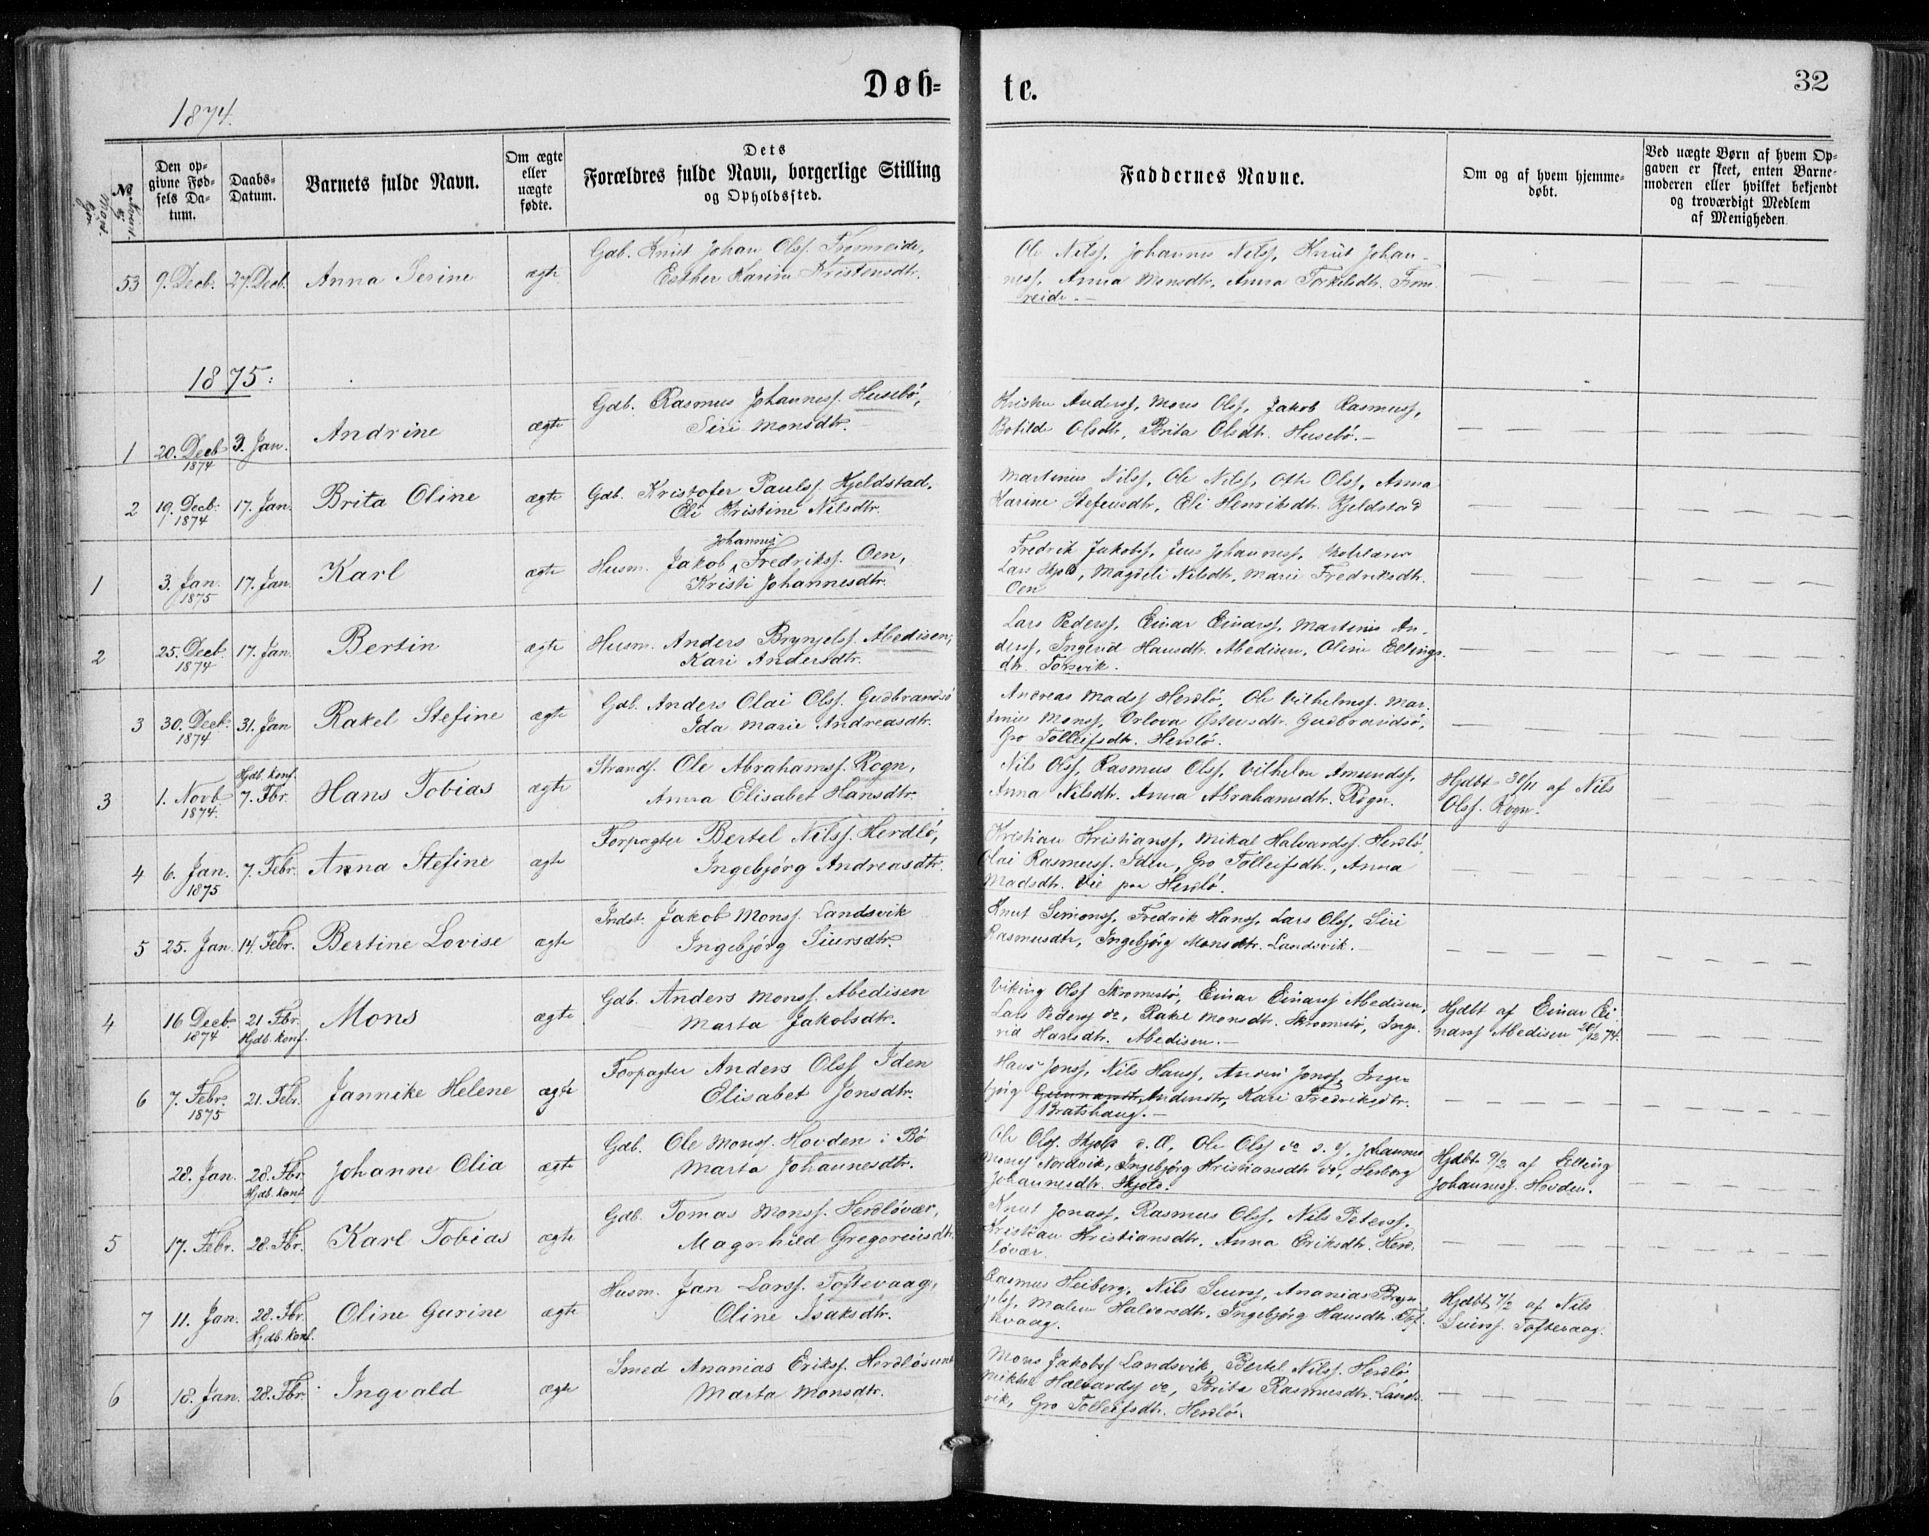 Døb=
te.
32
1874.
Mand-
kjøn.
No
Kvindkj.
Den op-
givne Fød-
sels Da-
tum.
Daabs-
Datum.
Barnets fulde Navn.
Om ægte
eller
uægte
fødte.
Dets
Forældres fulde Navn, borgerlige Stilling
og Opholdssted.
Faddernes Navne.
Om og af hvem hjemme-
døbt.
Ved uægte Børn af hvem Op-
gaven er skeet, enten Barne-
moderen eller hvilket bekjendt
og troværdigt Medlem
af Menigheden.
53 9. Decb. 27. Decb. Anna Serine ægte
Gdb. Knut Johan Olsf. Fromreide,
Esther Karine Kristensdtr.
Ole Nilsf, Johannes Nilsf, Knut Johan-
nesf, Anna Monsdtr, Anna Torkilsdtr. From
reide.
1875:
1 20. Decb 1874 3. Jan. Andrine ægte
Gdb. Rasmus Johannesf. Husebö,
Siri Monsdtr.
Kristen Andersf, Mons Olsf, Jakob Rasmusf,
Botilde Olsdtr, Brita Olsdtr. Husebö.
2 19. Decb. 1874 17. Jan. Brita Oline ægte
Gdb. Kristofer Paulsf Kjeldstad,
Eli Kristine Nilsdtr.
Martinus Nilsf, Ole Nilsf, Otte Olsf, Anna
Karine Stefensdtr, Eli Henriksdtr. Kjeldstad
1 3. Jan. 1875 17. Jan. Karl ægte
Husm. Jakob Johannes Fredriksf. Oen,
Kristi Johannesdtr.
Fredrik Jakobsf, Jens Johannesf,
Lars Skjold, Magdeli Nilsdtr, Marie Fredriksdtr.
Oen
2 25. Decb. 1874 17. Jan. Bertin ægte
Husm. Anders Brynjelsf. Abedisen,
Kari Andersdtr.
Lars Pedersf, Einar Einarsf, Martinus An-
dersf, Ingerid Hansdtr. Abedisen, Oline Ellings
dtr. Torsvik.
3 30. Decb. 1874 31. Jan Rakel Stefine ægte
Gdb. Anders Olai Olsf. Gudbrandsö
Ida Marie Andreasdtr.
Andreas Madsf Herdlö, Ole Vilhelmsf. Mar-
tinus Monsf, Orlova Østensdtr. Gudbrandsö,
Gro Tolleifsdtr. Herdlö.
3 1. Novb 1874. Hjdb. konf. 7. Fbr. Hans Tobias ægte
Strands. Ole Abrahamsf. Rogn,
Anna Elisabet Hansdtr.
Nils Olsf, Rasmus Olsf, Vilhelm Amundsf,
Anna Nilsdtr. Anna Abrahamsdtr. Rogn.
Hjdbt 30/11 af Nils
Olsf. Rogn.
4 6. Jan. 1875 7. Febr. Anna Stefine ægte
Forpagter Bertel Nilsf. Herdlö,
Ingebjörg Andreasdtr.
Kristian Kristiansf, Mikal Halvardsf. Herdlö
Olai Rasmusf. Iden, Gro Tolleifsdtr., Anna
Madsdtr. Vie paa Herdlö.
5 25. Jan. 14. Febr. Bertine Lovise ægte
Indst. Jakob Monsf. Landsvik
Ingebjörg Siursdtr.
Knut Simonsf, Fredrik Hansf, Lars Olsf, Siri
Rasmusdtr, Ingebjörg Monsdtr. Landsvik.
4 16 Decb. 1874 21. Fbr. Hjdb. konf. Mons ægte
Gdb. Anders Monsf. Abedisen
Marta Jakobsdtr.
Viking Olsf Skromeslö, Einar Einarsf Abedisen,
Lars Pedersf do, Rakel Monsdtr. Skromeslö, Inge-
rid Hansdtr. Abedisen.
Hjdbt af Einar Ei
narsf Abedisen 20/12 74.
6 7. Febr. 1875 21. Febr. Jannike Helene ægte
Forpagter Anders Olsf Iden
Elisabet Jonsdtr.
Hans Jonsf, Nils Hansf, Andri Jonsf, Inge-
björg Andersdtr, Kari Fredriksdtr.
Bratshaug.
28. Jan. 28. Fbr. Hjdb. konf Johanne Olia ægte
Gdb. Ole Monsf. Hovden i Bö
Marta Johannesdtr.
Ole Olsf. Skjold d. Æ, Ole Olsf do d. y, Johannes
Monsf Nordvik, Ingebjörg Kristiansdtr do, Herborg
Johannesdtr. Skjold.
Hjdbt 9/2 af Elling
Johannesf. Hovden.
5 17. Febr. 28. Fbr. Karl Tobias ægte
Gdb. Tomas Monsf. Herdlövær,
Magnhild Gregoriusdtr.
Knut Jonasf, Rasmus Olsf, Nils Petersf,
Kristian Kristiansdtr, Anna Eriksdtr. Herd-
lövær.
7 11. Jan. 28. Fbr. Hjdb. konf. Oline Gurine ægte
Husm. Jan Larsf. Toftevaag,
Oline Isaksdtr.
Rasmus Heiberg, Nils Siursf, Ananias Bryn-
jelsf, Malene Halvorsdtr, Ingebjörg Hansdtr. Tof-
tevaag.
Hjdbt 7/2 af Nils
Siursf. Toftevaag.
6 18. Jan. 28. Fbr. Ingvald ægte
Smed Ananias Eriksf. Herdlösund
Marta Monsdtr.
Mons Jakobsf Landsvik, Bertel Nilsf. Herdlö,
Mikkel Halvardsf do, Brita Rasmusdtr. Lands-
vik, Gro Tolleifsdtr. Herdlö.